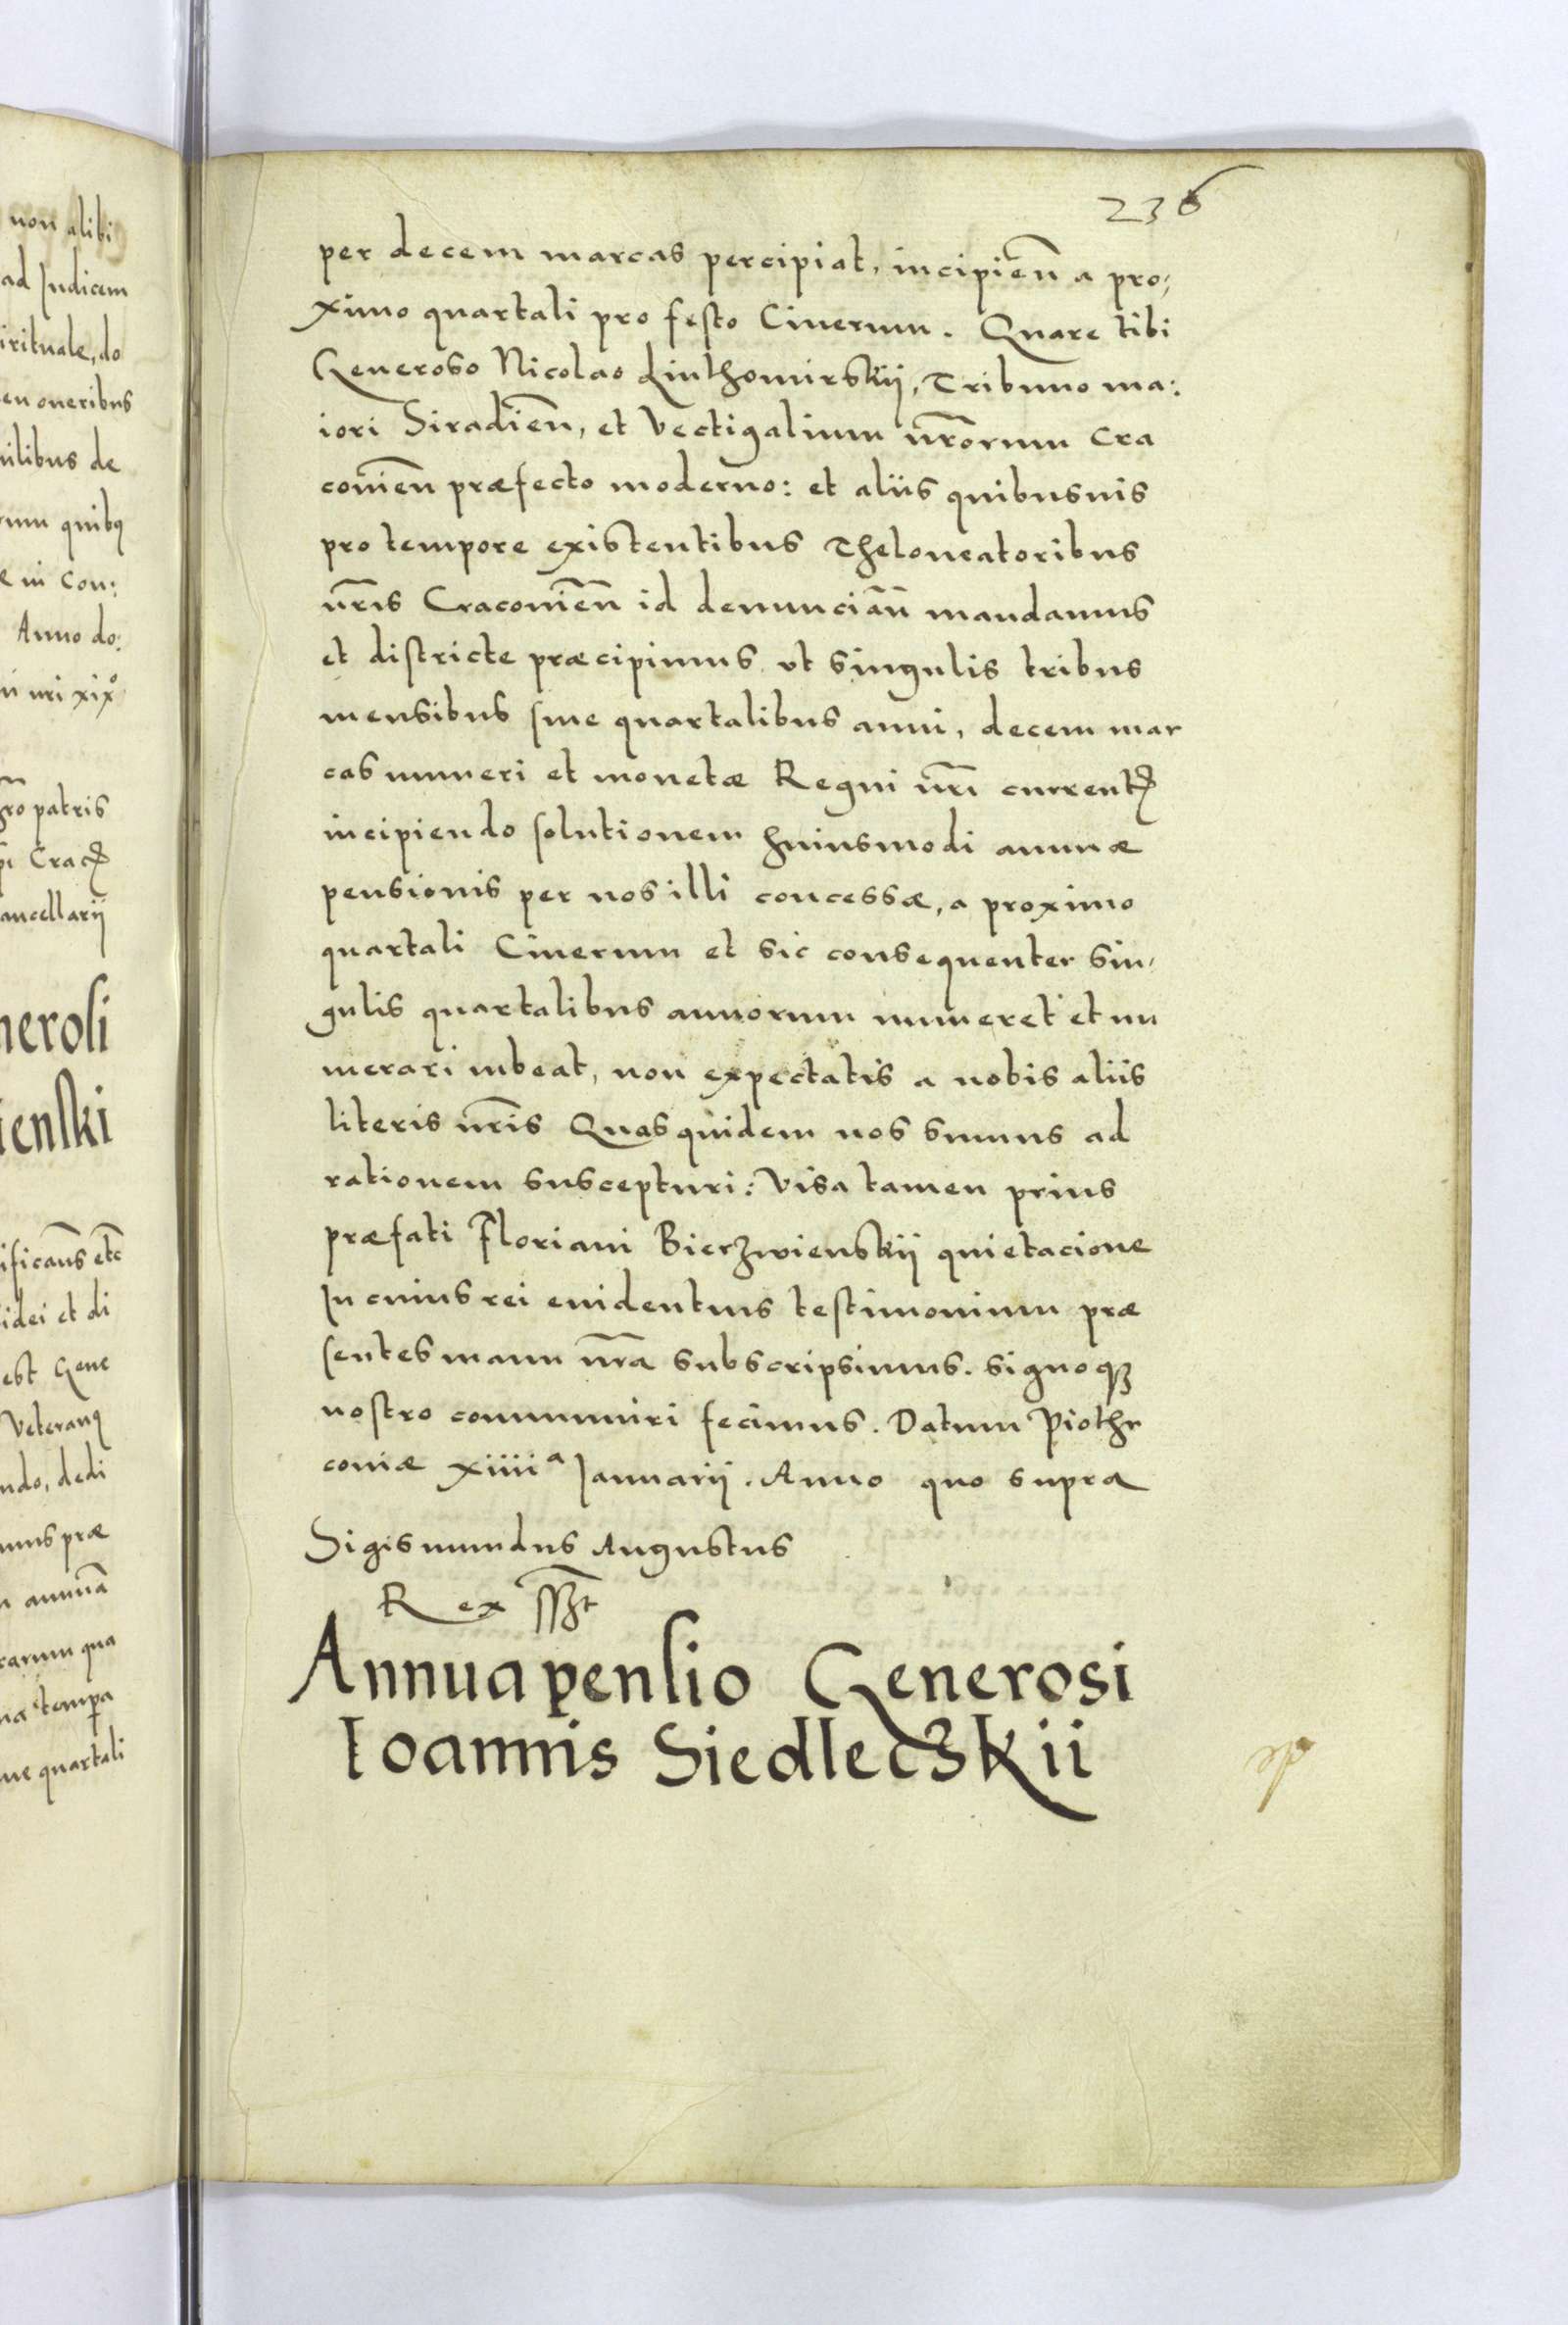 non alibi
ad Iudicem
irituale, do
en oneribus
ilibus de
rum quibꝯ
e in Con:
Anno do:
ri nri xixº
gro patris
Cracꝭ
ancellarij
neroſi
ienſki
ifican̄s etc̄
idei et di
est Gene
Veteranꝯ
ndo, dedi
mus præ
annuā
carum qua
tempa
ue quartali
236
per decem marcas percipiat, incipien̄ a pro,
ximo quartali pro feſto Cinerum. Quare tibi
Generoso Nicolao Liuthomirskij, Tribuno ma:
iori Siradien̄, et Vectigalium nr̄orum Cra
couien̄ præfecto moderno: et aliis quibusuis
pro tempore existentibus Theloneatoribus
nr̄is Cracouien̄ id denuncian̄ mandamus
et diſtricte præcipimus vt singulis tribus
mensibus ſiue quartalibus anni, decem mar
cas numeri et monetæ Regni nr̄i currentꝭ
incipiendo ſolutionem huiusmodi annuæ
pensionis per nos illi concessæ, a proximo
quartali Cinerum et sic consequenter sin,
gulis quartalibus annorum numeret et nu
merari iubeat, non expectatis a nobis aliis
literis nr̄is Quas quidem nos sumus ad
rationem suscepturi: Visa tamen prius
præfati Floriani Bierzwienskij quietacione
In cuius rei euidentius teſtimonium præ
ſentes manu nr̄a subscripsimus. signoqꝫ
noſtro communiri fecimus. Datum Piothr
couiæ xiiiiª Ianuarij. Anno quo supra
Sigismundus Augustus
Rex ſſʒt
Annua penſio Generosi
Ioannis Siedleczkii